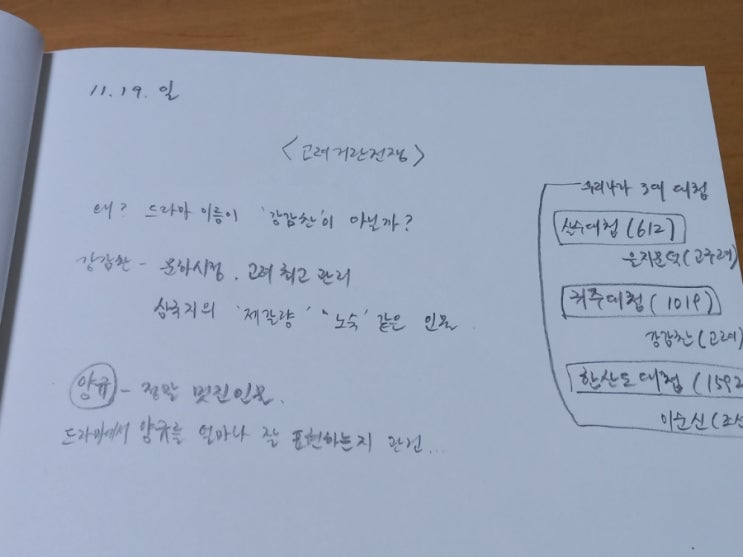 11.19. 일
<고려거란전쟁>
왜? 드라마 이름이 '강감찬'이 아닌가?
강감찬 - 문하시중. 고려 최고 관리
삼국지의 '제갈량' '노숙' 같은 인물.
양규 - 정말 멋진 인물.
드라마에서 양규를 얼마나 잘 표현하는지 관건...
우리나라 3대 대첩
살수대첩(612)
을지문덕(고구려)
귀주대첩(1019)
강감찬(고려)
한산도대첩(1592
이순신(조선